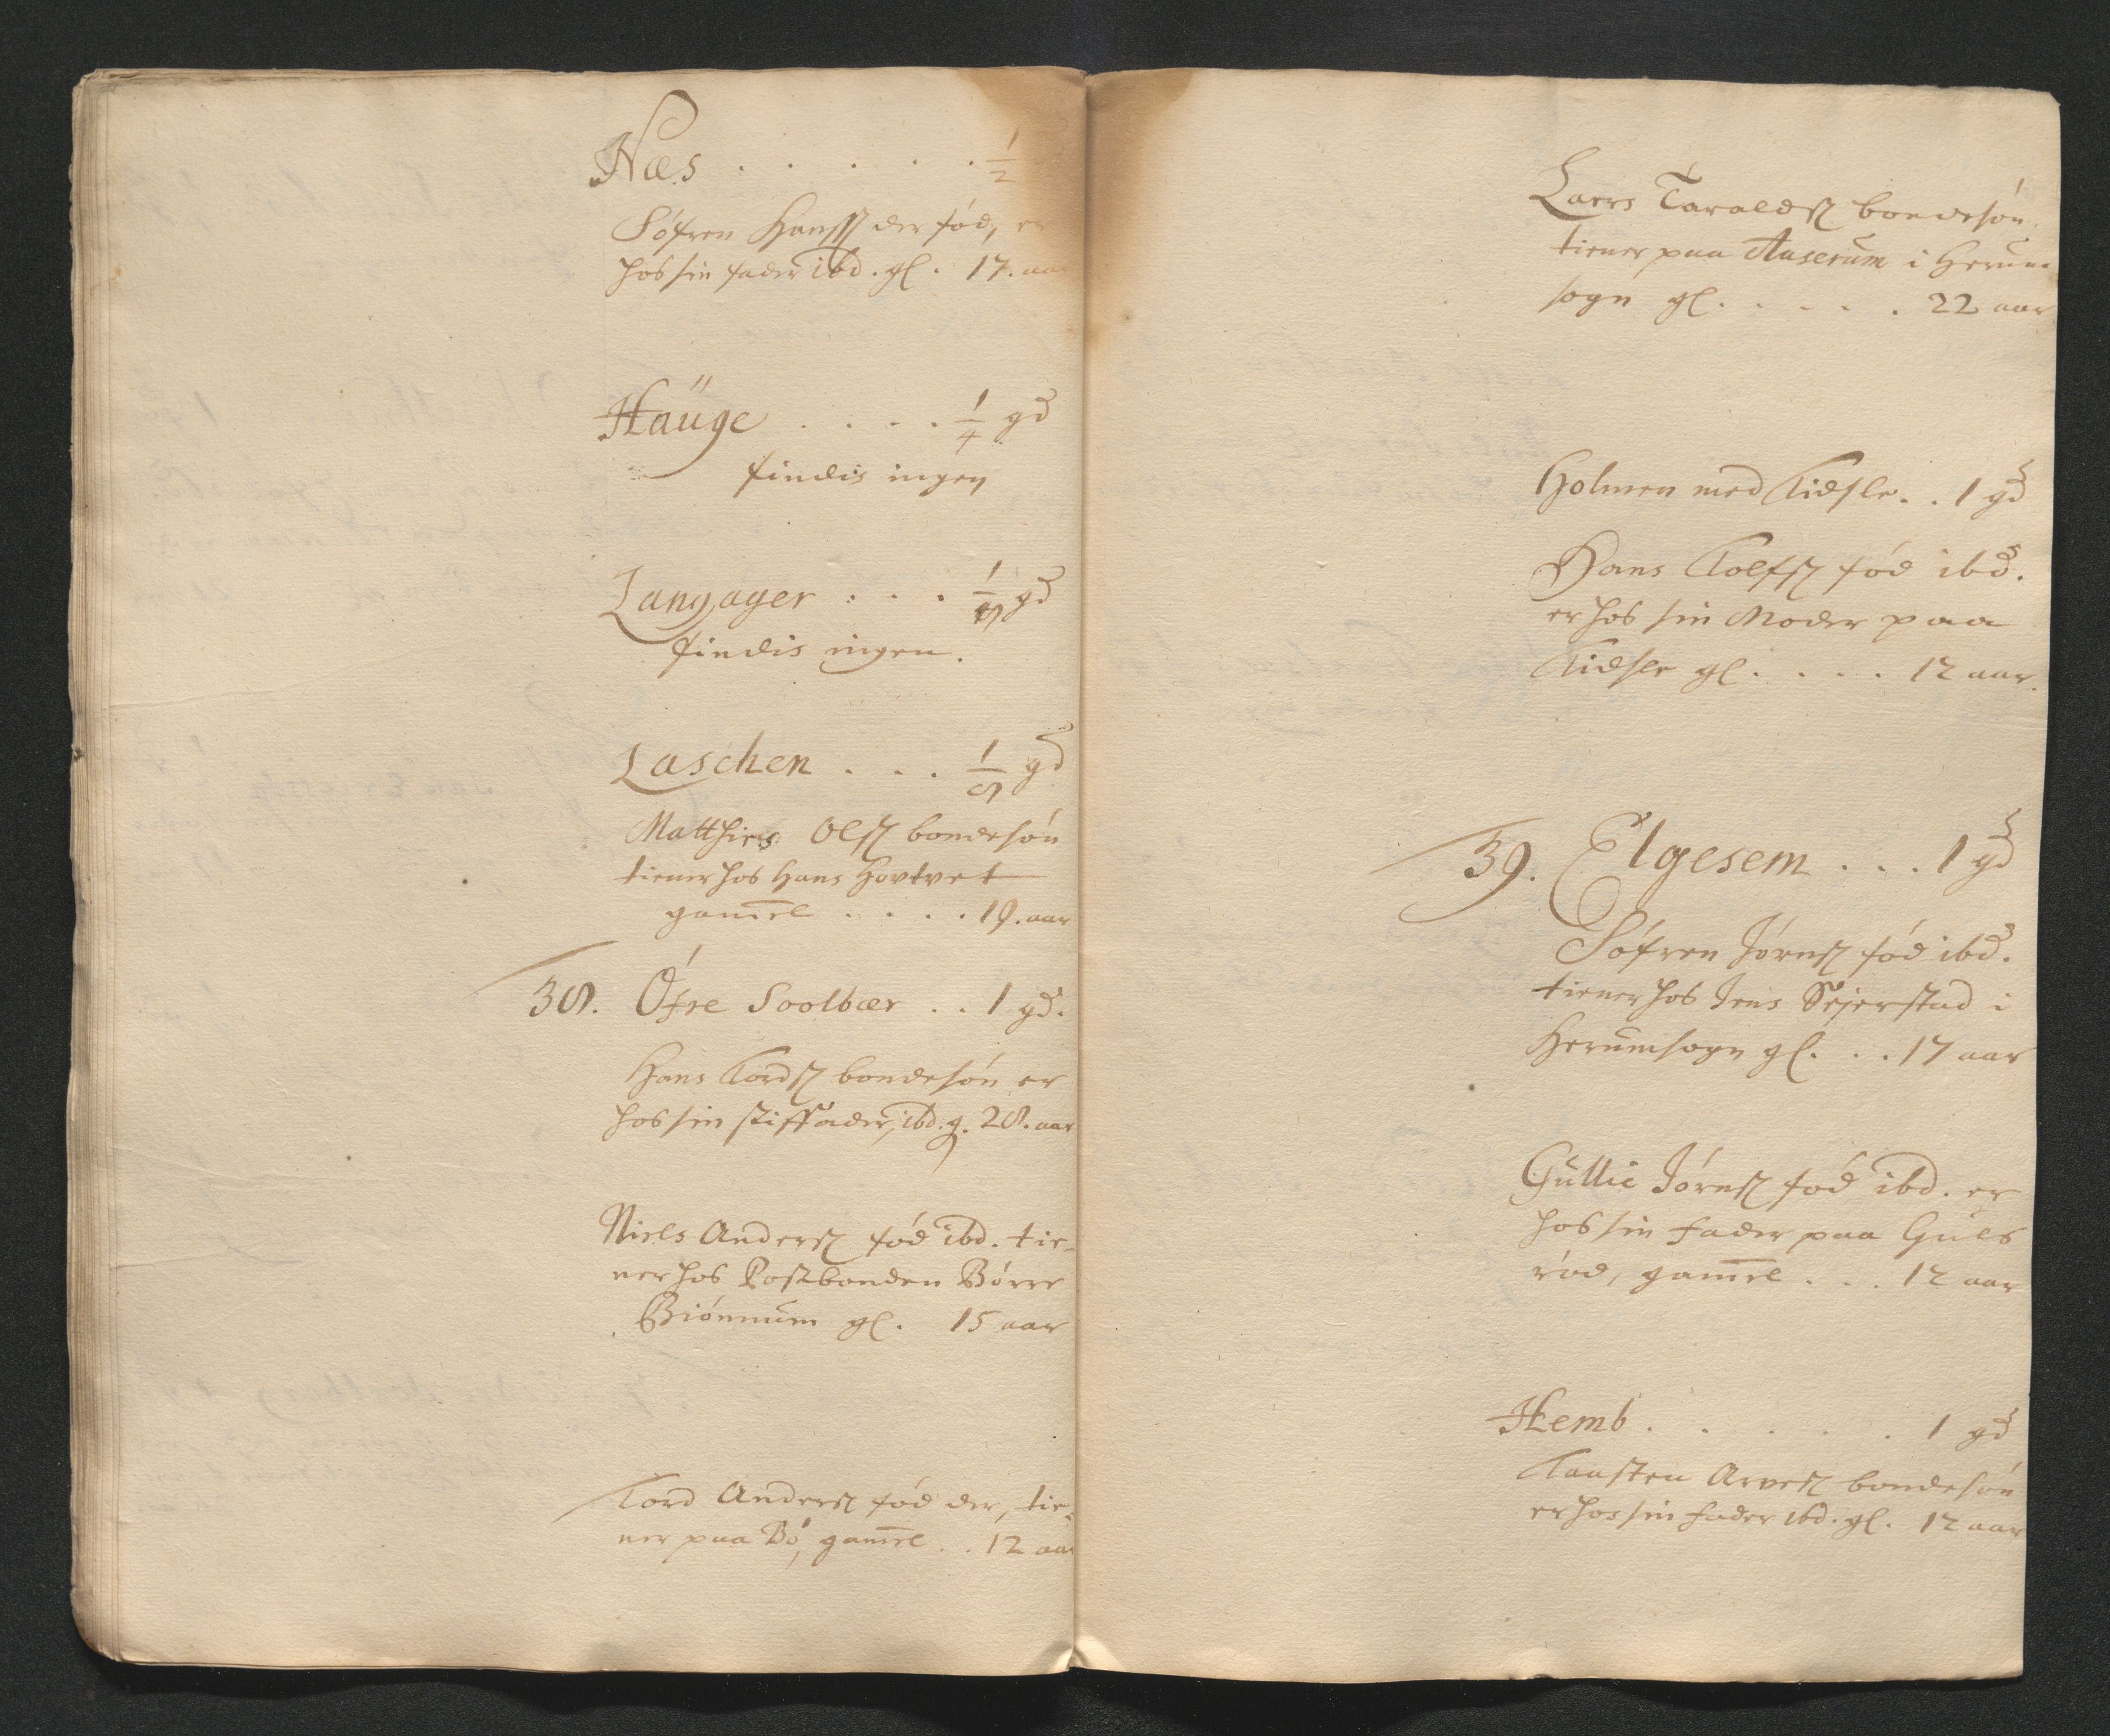 Næs . . . . . . 1/2
Söfren Hansß der föd, er
hos sin fader ibd. gl. 17. aa
Haüge . . . . 1/4 gd
findis ingen
Langager . . . 1/8 gd
findis ingen.
Laschen . . . 1/8 gd
Matthies Olß bondesön
tiener hos Hans Hovtvet
gamel . . . . 19. aar
38. Öfre Soolbær . . 1 gd.
Hans Tordß bondesön er
hos sin stiffader, ibd. g. 28. aar
Niels Anderß föd ibd. tie-
ner hos Postbonden Börre
Biönnüm gl. 15 aar
Tord Anderß föd der, tie-
ner paa Bö, gamel . . 12 aar
Laers Taraldß bondesön
tiener paa Aaserüm i Herum
sogn gl. . . . . . 22 aar
Holmen med Tidsle . . 1 gd
Hans Tolfß föd ibd.
er hos sin Moder paa
Tidsle gl. . . . . 12 aar.
39. Elgesem . . . 1 gd
Söfren Jörnß föd ibd.
tiener hos Jens Sejerstad i
Herümsogn gl. . . 17 aar
Güllic Jörnß föd ibd. er
hos sin fader paa Güls
röd, gamel . . . 12 aar
Hemb . . . . . . 1 gd
Taasten Arveß bondesön
er hos sin fader ibd. gl. 12 aar